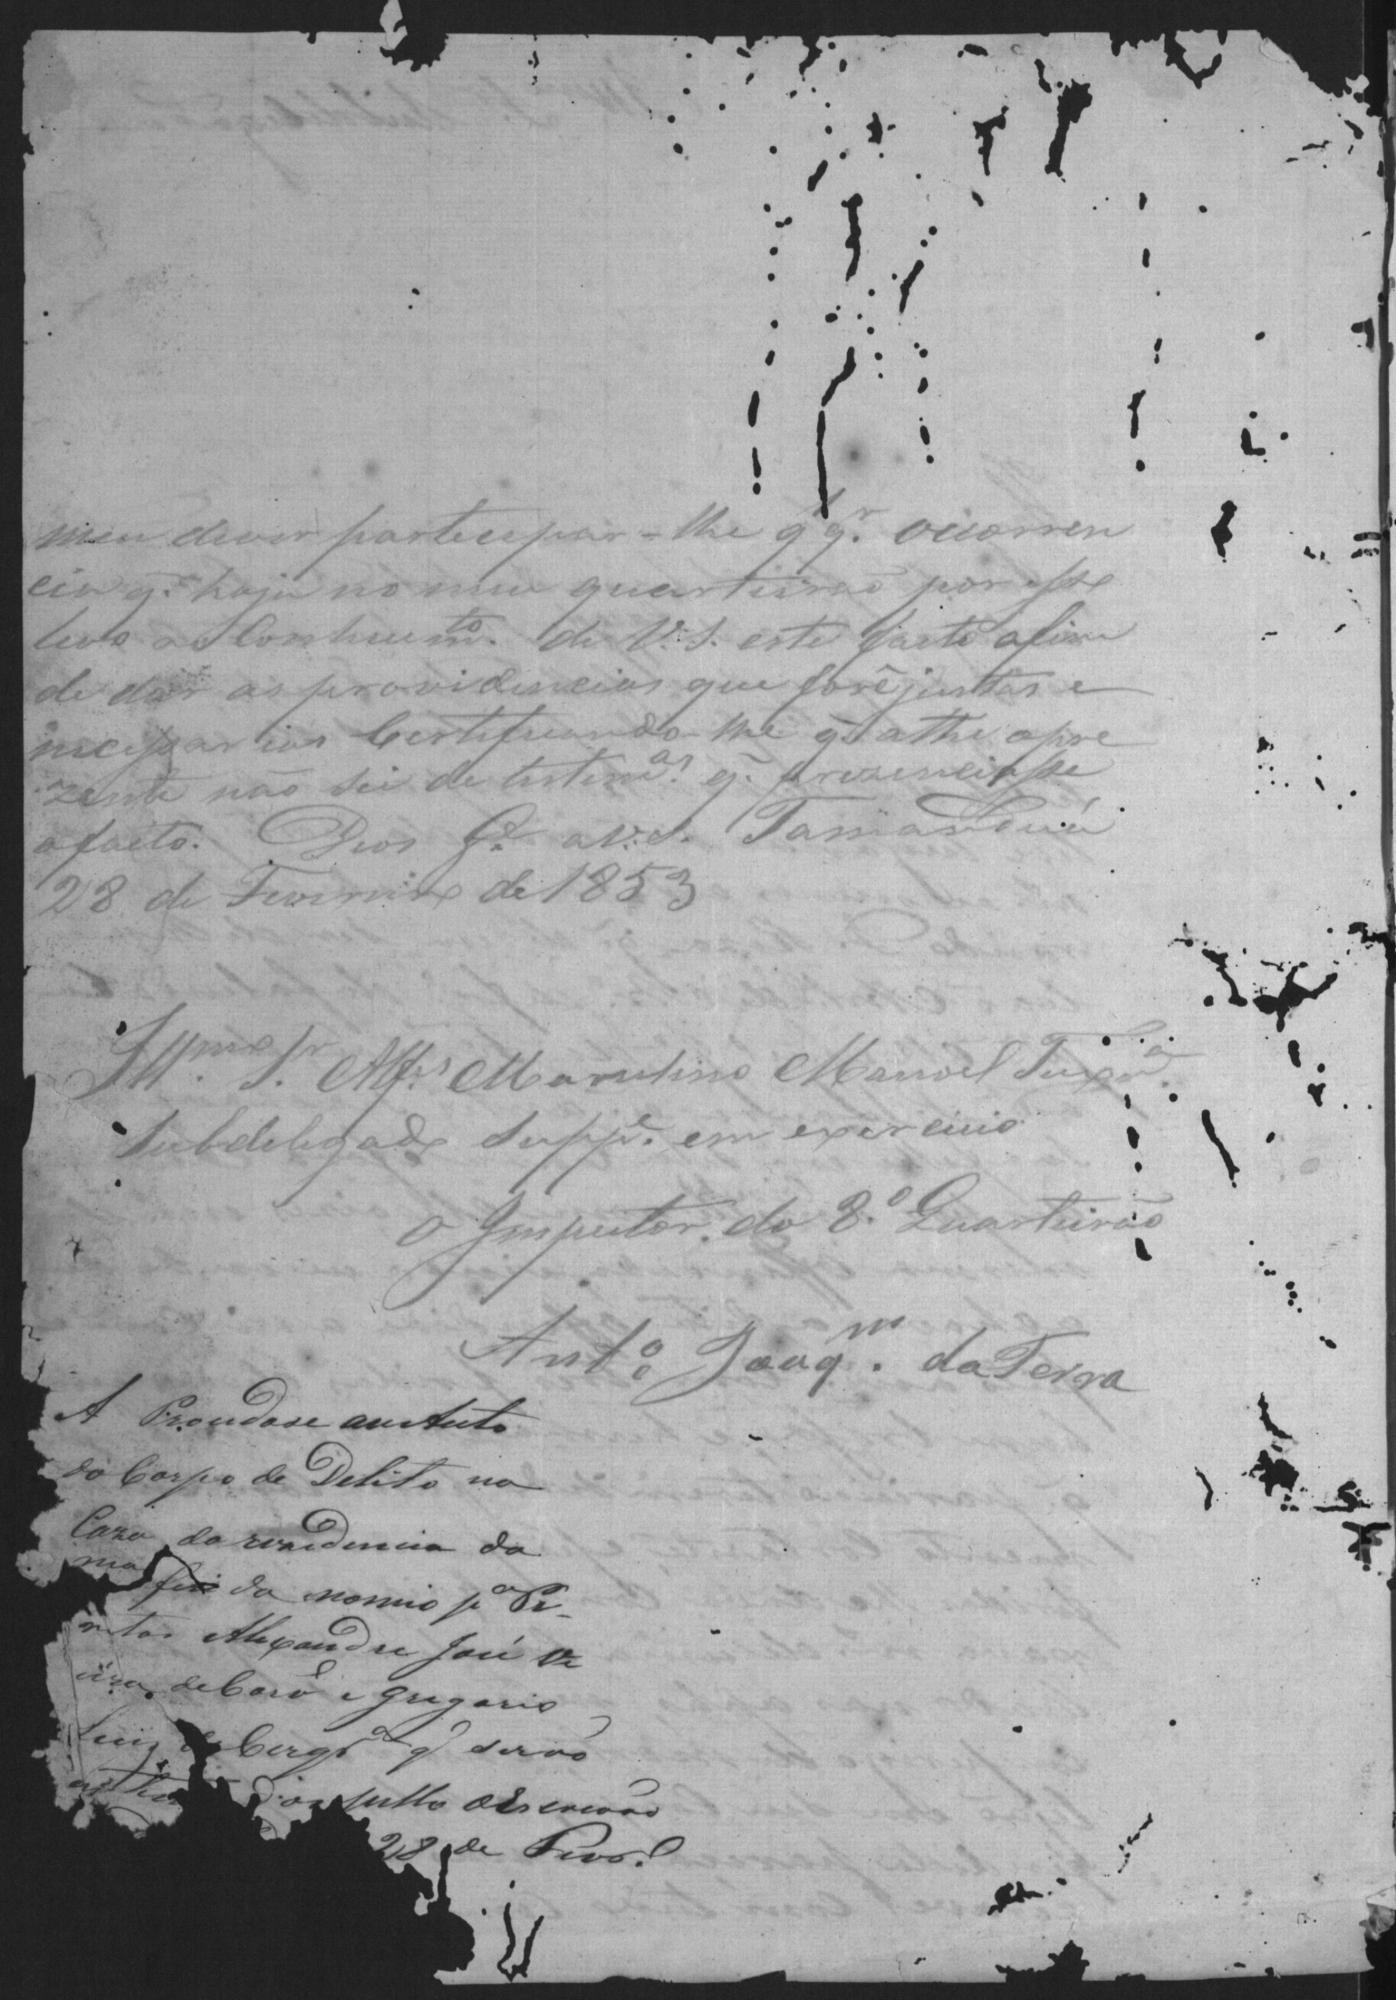 meu dever participar-lhe qq.r occorren
cia q.e haja no meu quarteirão por isso
levo ao Conhecim.to de V.S. este facto afim
de dar as providencias que forẽ justas e
necessarias Certificando-lhe q̃ athe apre
zente não sei de testem.as q̃ prezenciasse
o facto. Deos G.e a V.S. Tamanduá
28 de Fevereiro de 1853
Ill.mo Sr. Alf.s Marculino Manoel Teixr.a
Subdelegado Supp.e em exercicio
O Inspector do 8.o Quarteirão
Ant.o Joaq.m da Terra
A Procedase auto
do Corpo de Delito na
Caza da rezidencia da
da nomeio p.a Pe-
ritos Alexandre José
e Gregorio
Luiz de q̃ servirão
o Escrivão
28 de Fever.